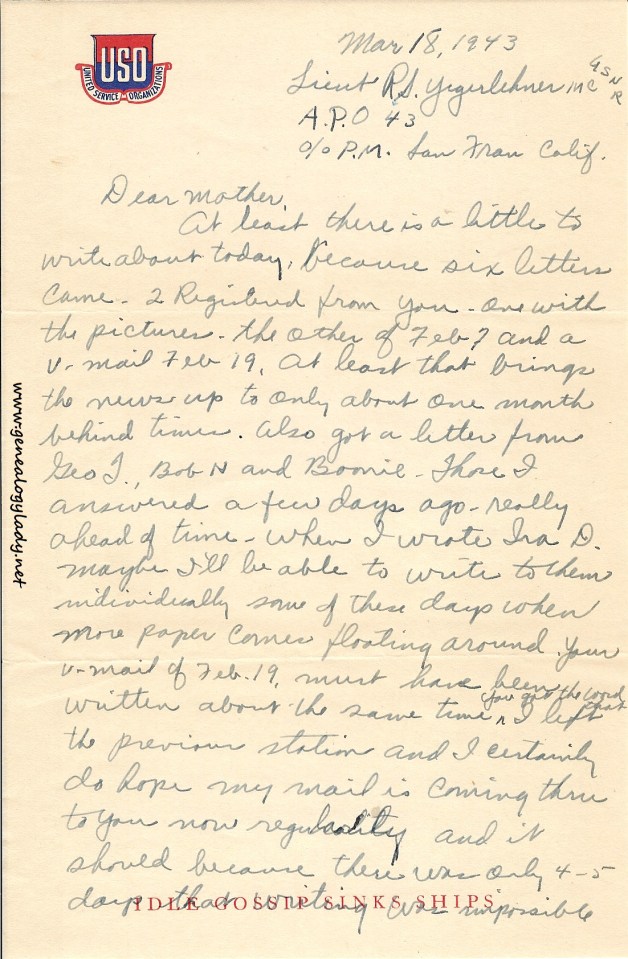 USO
UNITED SERVICE ORGANIZATIONS
Mar 18, 1943
Lieut R.S. Yegerlehner MC USNR
A.P.O 43
c/o P.M. San Fran Calif.
Dear Mother,
At least there is a little to
write about today, because six letters
came - 2 Registered from you - one with
the pictures - the other of Feb 7 and a
V-mail Feb 19. At least that brings
the news up to only about one month
behind times. Also got a letter from
Geo T., Bob N and Boonie - Those I
answered a few days ago - really
ahead of time - when I wrote Ira D.
maybe I'll be able to write to them
individually some of these days when
more paper comes floating around. Your
V-mail of Feb. 19, must have been
written about the same time ^ you got the word that I left
the previous station and I certainly
do hope my mail is coming thru
to you now regularily and it
should because there was only 4-5
days that writing was impossible
IDLE GOSSIP SINKS SHIPS
www.genealogylady.net